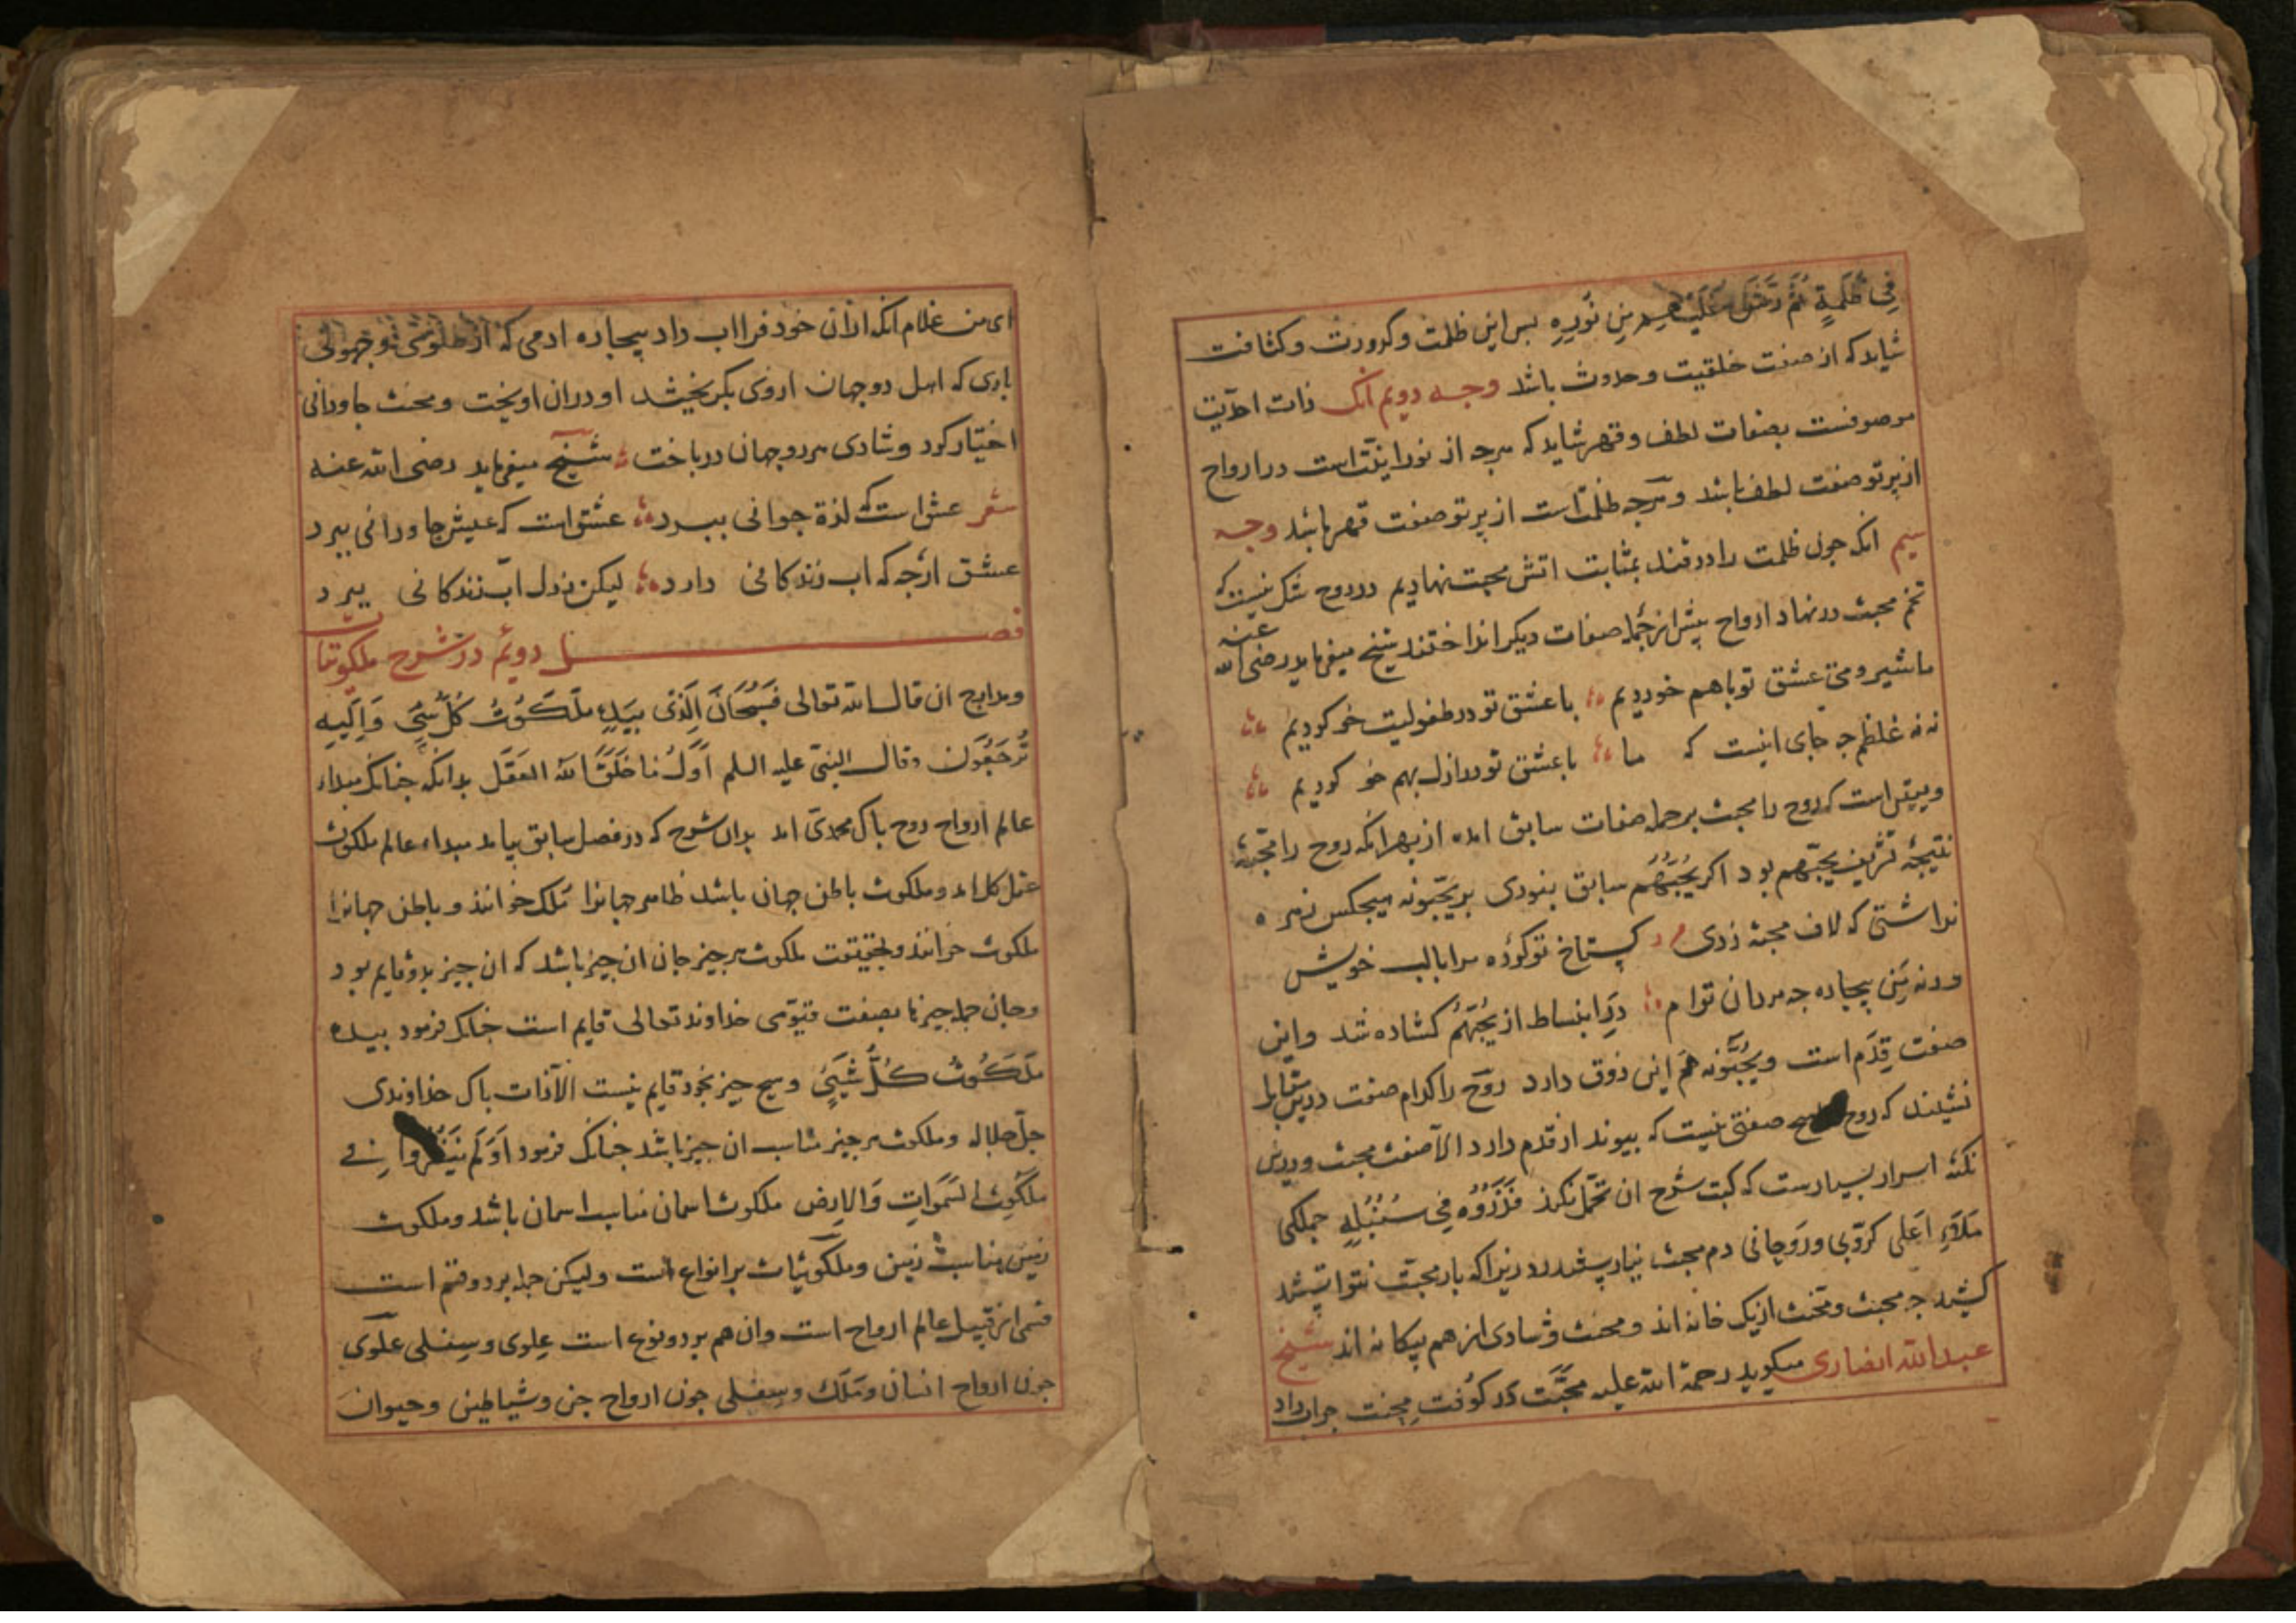 فِی ظُلمَةٍ ثُمَّ رَشَّ عَلَیهِم مِن نُورِهِ بس این ظلمت وکدورت وکثافت
شاید که از صفت خلقیت وحدوث باشد وجه دویم انک ذات احدیت
موصوفست بصفات لطف وقهر شاید که هرجه از نورانیّت است در ارواح
از برتو صفت لطف باشد وهرجه ظلمت است از برتو صفت قهر باشد وجه
سیم انکه جون ظلمت را در قند بمثابت اتش محبت نهادیم در روح شک نیست که
تخم محبت در نهاد ارواح بیش از جمله صفات دیکر انداختند شیخ میفرماید رضی الله عنه
ما شیر ومی عشق تو باهم خوردیم با عشق تو در طفولیت خو کردیم
نه نه غلطم جه جای اینست که ما با عشق تو در ازل بهم خو کردیم
ویقین است که روح را محبت بر جمله صفات سابق امده از بهر انکه روح را محبت
نتیجهٔ تشریف یحبّهم بود اکر یُحِبُّهُم سابق نبودی بر یحبّونه هیجکس زهره
نداشتی که لاف محبة زدی کستاخ تو کردهٔ مرا با لب خویش
ورنه مَن بیجاره جه مردان توام دَرِ انبساط از یُحِبُّهُم کشاده شد واین
صفت قِدَم است ویُحِبُّونه هَم این ذوق دارد رُوح را کدام صفت درین مقابل
نشیند که روح هیچ صفتی نیست که بیوند از قدم دارد الّا صفت محبت ودرین
نکته اسرار بسیارست که کبت شرح ان تحمّل نکرذ فَذَرُوهُ فِی سُنبُلِهِ جملکی
مَلاَءِ اَعلی کرّوبی ورَوحانی دم محبت نیارستند زد زیرا که بار محبّت نتوانستند
کشید جه محبت ومحنت از یک خانه اند ومحنت وشادی از هم بیکانه اند شیخ
عبدالله انصاری میکوید رحمة الله علیه محبَّت در کوفت محنت جواب داد
ای من غلام انکه ازان خود فرا اب داد بیجاره ادمی که از ظلومی وجهولی
باری که اهل دو جهان ازوی بکریخیشد او دران اویخت ومحنت جاودانی
اختیار کرد وشادی هر دو جهان درباخت شیخ میفرماید رضی الله عنه
شعر عشق است که لذة جوانی ببرد عشق است که عیش جاودانی ببرد
عشق ارجه که اب زندکانی دارد لیکن ز دل اب زندکانی ببرد
فصل دویُم در شرح ملکوتیات
ومدارج ان قال الله تعالی فَسُبحَانَ اَلَّذی بِیَدِهِ مَلَکُوتُ کُلِّ شَیءٍ وَاِلَیهِ
تُرجَعُونَ وقال النبی علیه السلم اَوَّلُ مَا خَلَقَ الله العَقل بدانکه جنانک مبداء
عالم ارواح روح باک محمدی امد بدان شرح که در فصل سابق بیامد مبداء عالم ملکوت
عقل کل امد وملکوت باطن جهان باشد ظاهر جهانرا مُلک خوانند وباطن جهانرا
ملکوت خوانند وبحقیقت ملکوت هر جیز جان ان جیز باشد که ان جیز بدو قایم بود
وجان جمله جیزها بصفت قیّومی خداوند تعالی قایم است جنانک فرمود بیده
مَلَکُوتُ کُلِّ شَیءٍ وهیج جیز بخود قایم نیست الّا ذات باک خداوندی
جلّ جلاله وملکوت هر جیز مناسب ان جیز باشد جنانک فرمود اَوَلَم یَنظُرُوا فِی
مَلَکُوتِ السَّمَوَاتِ وَالارض ملکوت اسمان مناسب اسمان باشد وملکوت
زمین مناسب زمین وملکوتیات بر انواع است ولیکن جمله بر دو قسم است
قسمی از قبیل عالم ارواح است وان هم بر دو نوع است علوی وسِفلی علَوی
جون ارواح انسان ومَلَک وسِفلی جون ارواح جن وشیاطین وحیوان